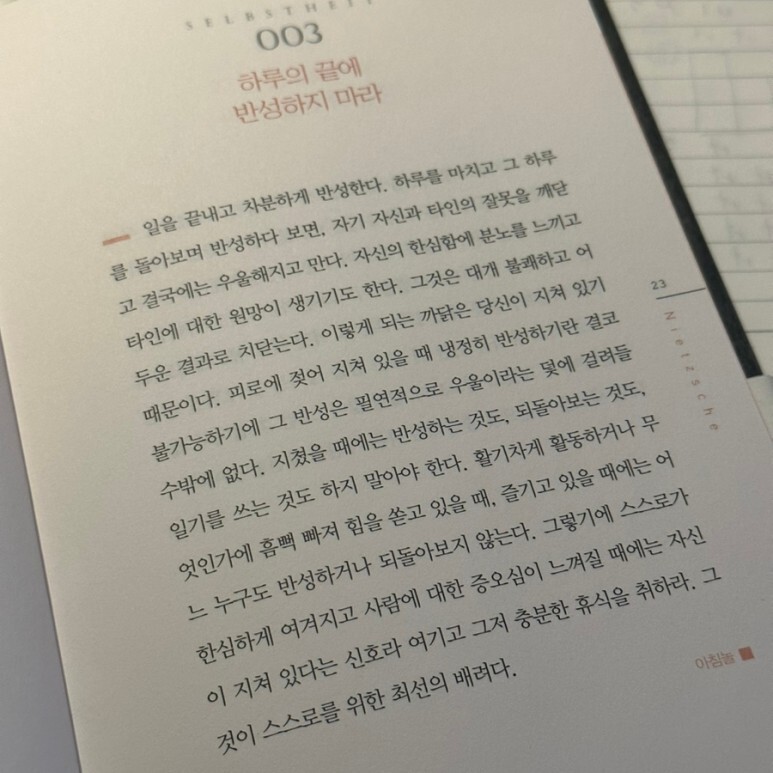 SELBSTHEIT
003
하루의 끝에
반성하지 마라
일을 끝내고 차분하게 반성한다. 하루를 마치고 그 하루
를 돌아보며 반성하다 보면, 자기 자신과 타인의 잘못을 깨닫
고 결국에는 우울해지고 만다. 자신의 한심함에 분노를 느끼고
타인에 대한 원망이 생기기도 한다. 그것은 대개 불쾌하고 어
두운 결과로 치닫는다. 이렇게 되는 까닭은 당신이 지쳐 있기
때문이다. 피로에 젖어 지쳐 있을 때 냉정히 반성하기란 결코
불가능하기에 그 반성은 필연적으로 우울이라는 덫에 걸려들
수밖에 없다. 지쳤을 때에는 반성하는 것도, 되돌아보는 것도,
일기를 쓰는 것도 하지 말아야 한다. 활기차게 활동하거나 무
엇인가에 흠뻑 빠져 힘을 쏟고 있을 때, 즐기고 있을 때에는 어
느 누구도 반성하거나 되돌아보지 않는다. 그렇기에 스스로가
한심하게 여겨지고 사람에 대한 증오심이 느껴질 때에는 자신
이 지쳐 있다는 신호라 여기고 그저 충분한 휴식을 취하라. 그
것이 스스로를 위한 최선의 배려다.
아침놀
23
Nietzsche